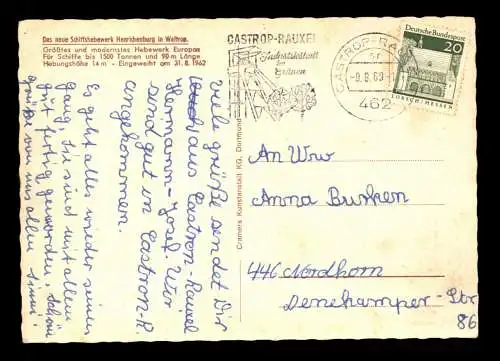 Das neue Schiffshebewerk Henrichenburg in Waltrop.
Größtes und modernstes Hebewerk Europas
Für Schiffe bis 1500 Tonnen und 90 m Länge
Hebungshöhe 14 m - Eingeweiht am 31. 8. 1962
CASTROP-RAUXEL
Industriestadt
im Grünen
CASTROP-RAUXEL
-9.8.69
462
Deutsche Bundespost
20
LORSCH/HESSEN
Cramers Kunstanstalt KG, Dortmund
Viele grüße sendet Dir
aus Castrop-Rauxel
Hermann-Josef. Wir
sind gut in Castrop-R
angekommen.
Es geht alles wieder seinen
gang, sie sind mit allem
gut fertig geworden, schön
grüße von uns allen
An Wrw
Anna Busken
446 Nordhorn
Denekamper-Str
86